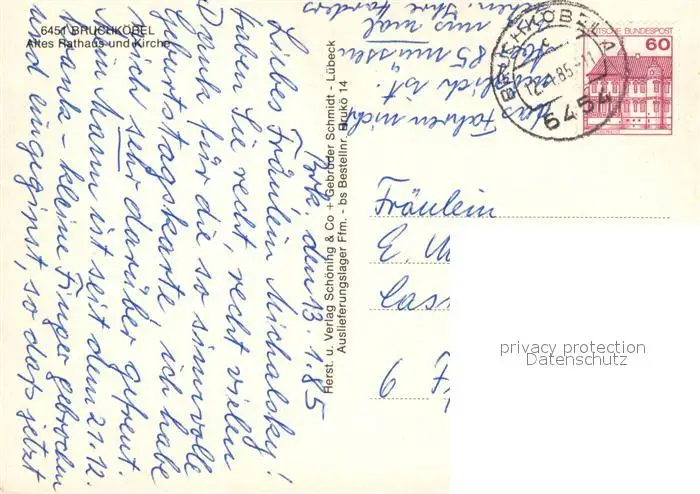 6451 BRUCHKÖBEL
Altes Rathaus und Kirche
Brk., den 13.1.85
Liebes Fräulein Michalsky!
Haben Sie recht, recht vielen
Dank für die so sinnvolle
Geburtstagskarte ich habe
mich sehr darüber gefreut.
Mein Mann ist seit dem 21.12.
krank - kleine Finger gebrochen
und eingegipst, so daß jetzt
Herst. u. Verlag Schöning & Co + Gebrüder Schmidt - Lübeck
Auslieferungslager Ffm. - bs Bestellnr. Brukö 14
Fahren nicht
ist
85 müssen
uns mal
Ihre
BRUCHKÖBEL
85
6454
DEUTSCHE BUNDESPOST
60
Fräulein
E. M
Cass
9 F
privacy protection
by Oldthing